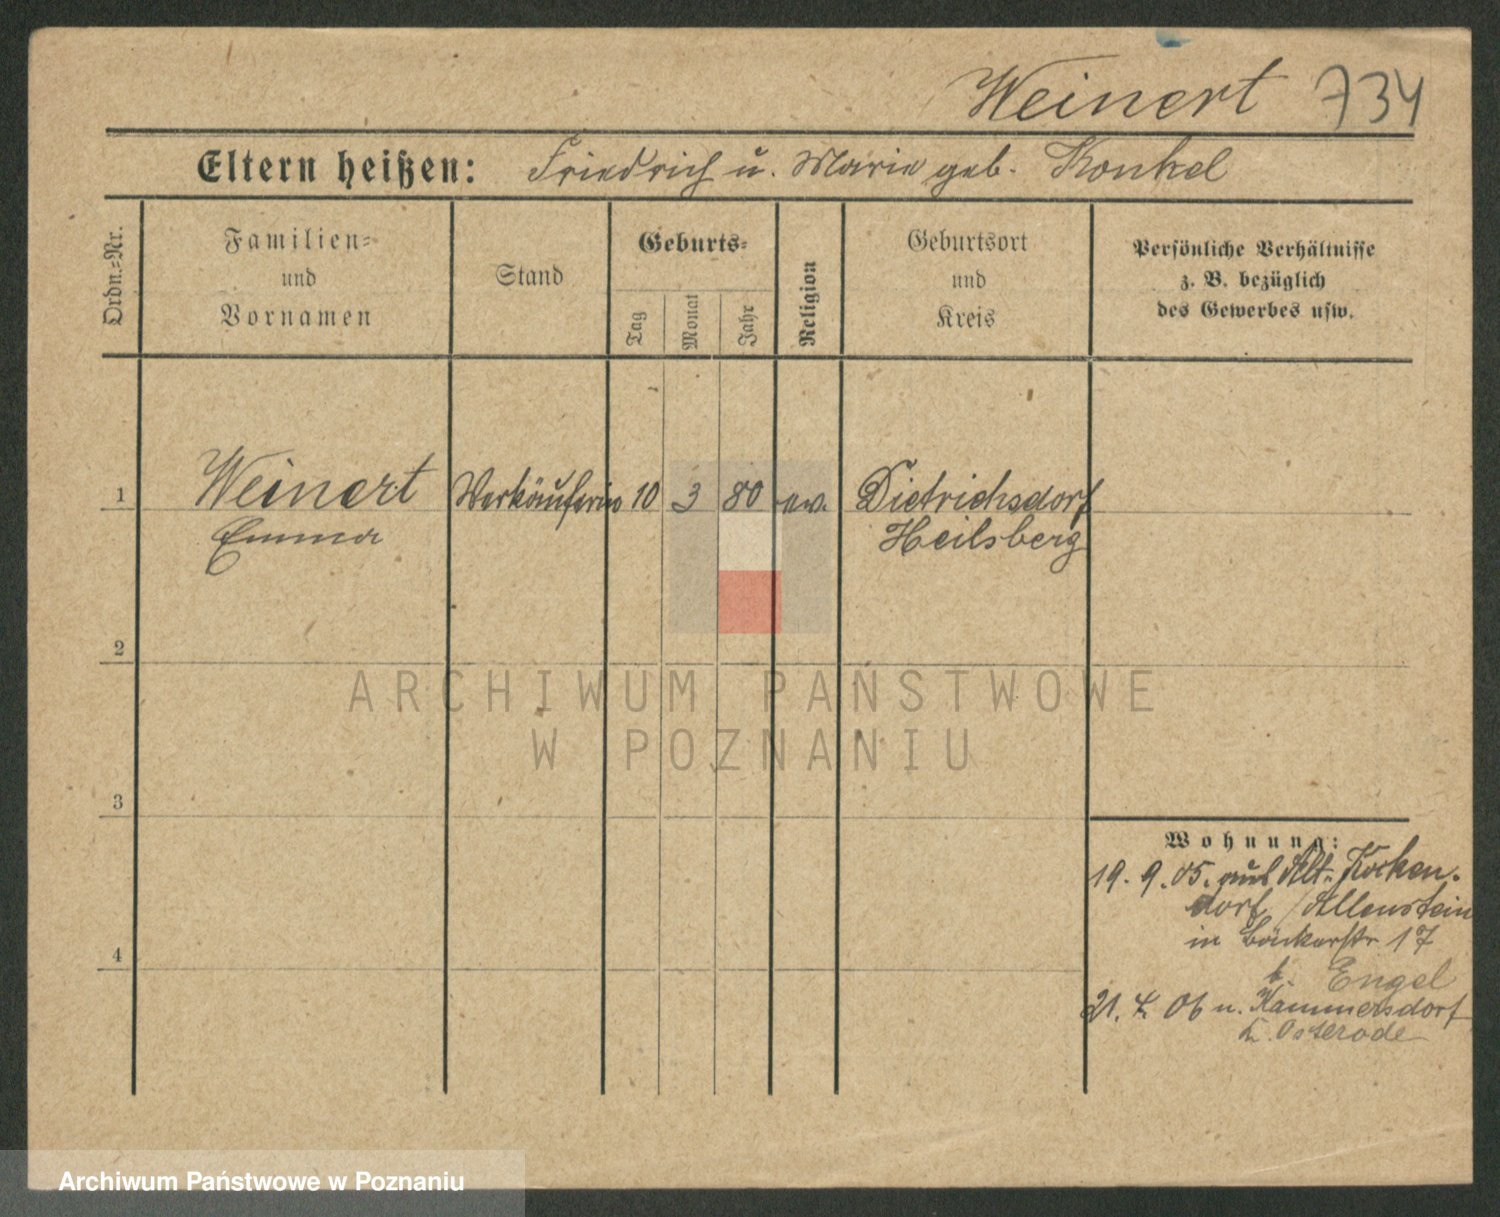 Weinert 734
Eltern heißen: Friedrich u. Marie geb. Konkel
Ordn.-Nr.
Familien-
und
Vornamen
Stand
Geburts-
Tag
Monat
Jahr
Religion
Geburtsort
und
Kreis
Persönliche Verhältnisse
z. B. bezüglich
des Gewerbes usw.
1 Weinert Verkäuferin 10 3 80 ev. Dietrichsdorf
Emma Heilsberg
2
ARCHIWUM PAŃSTWOWE
W POZNANIU
3
Wohnung:
19. 9. 05. aus Alt-Kocken-
dorf / Allenstein
in Bäckerstr 17
b. Engel
4
21. 4. 06 n. Kämmersdorf
K. Osterode
Archiwum Państwowe w Poznaniu